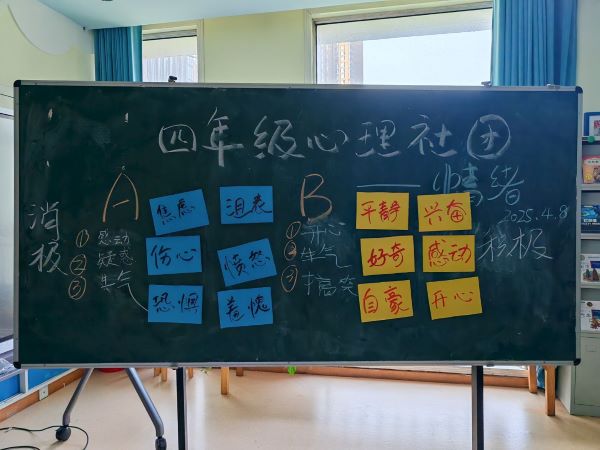 四年级心理社团
——情绪
2025.4.8
A
消极
① 感动
② 疑惑
③ 生气
焦虑
沮丧
伤心
愤怒
恐惧
羞愧
B
① 开心
② 生气
③
平静
兴奋
好奇
感动
自豪
开心
积极